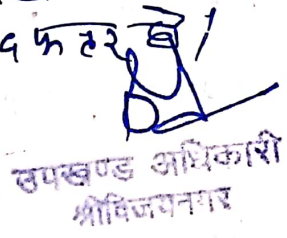 दफ्तर हो।
उपखण्ड अधिकारी
श्रीविजयनगर